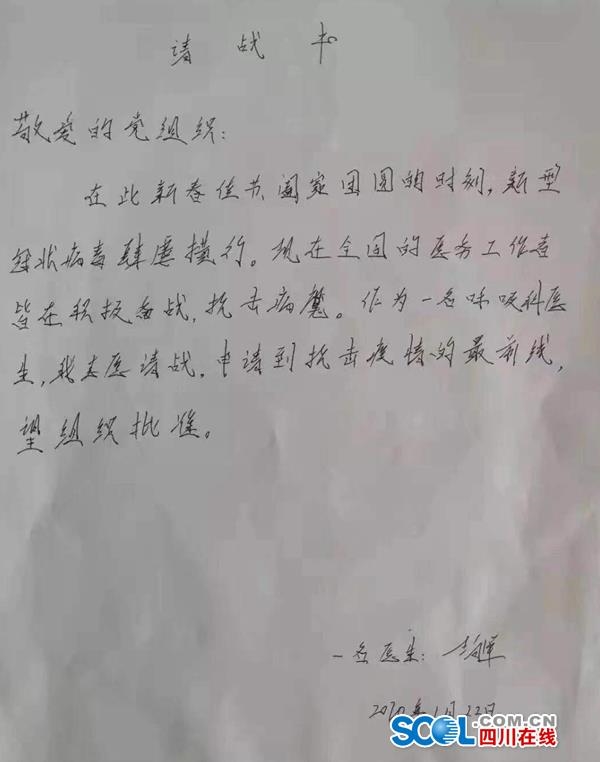 请战书
敬爱的党组织：
在此新春佳节阖家团圆的时刻，新型
冠状病毒肆虐横行。现在全国的医务工作者
皆在积极备战，抗击病魔。作为一名呼吸科医
生，我志愿请战，申请到抗击疫情的最前线，
望组织批准。
一名医生：
2020年1月23日
SCOL.COM.CN
四川在线